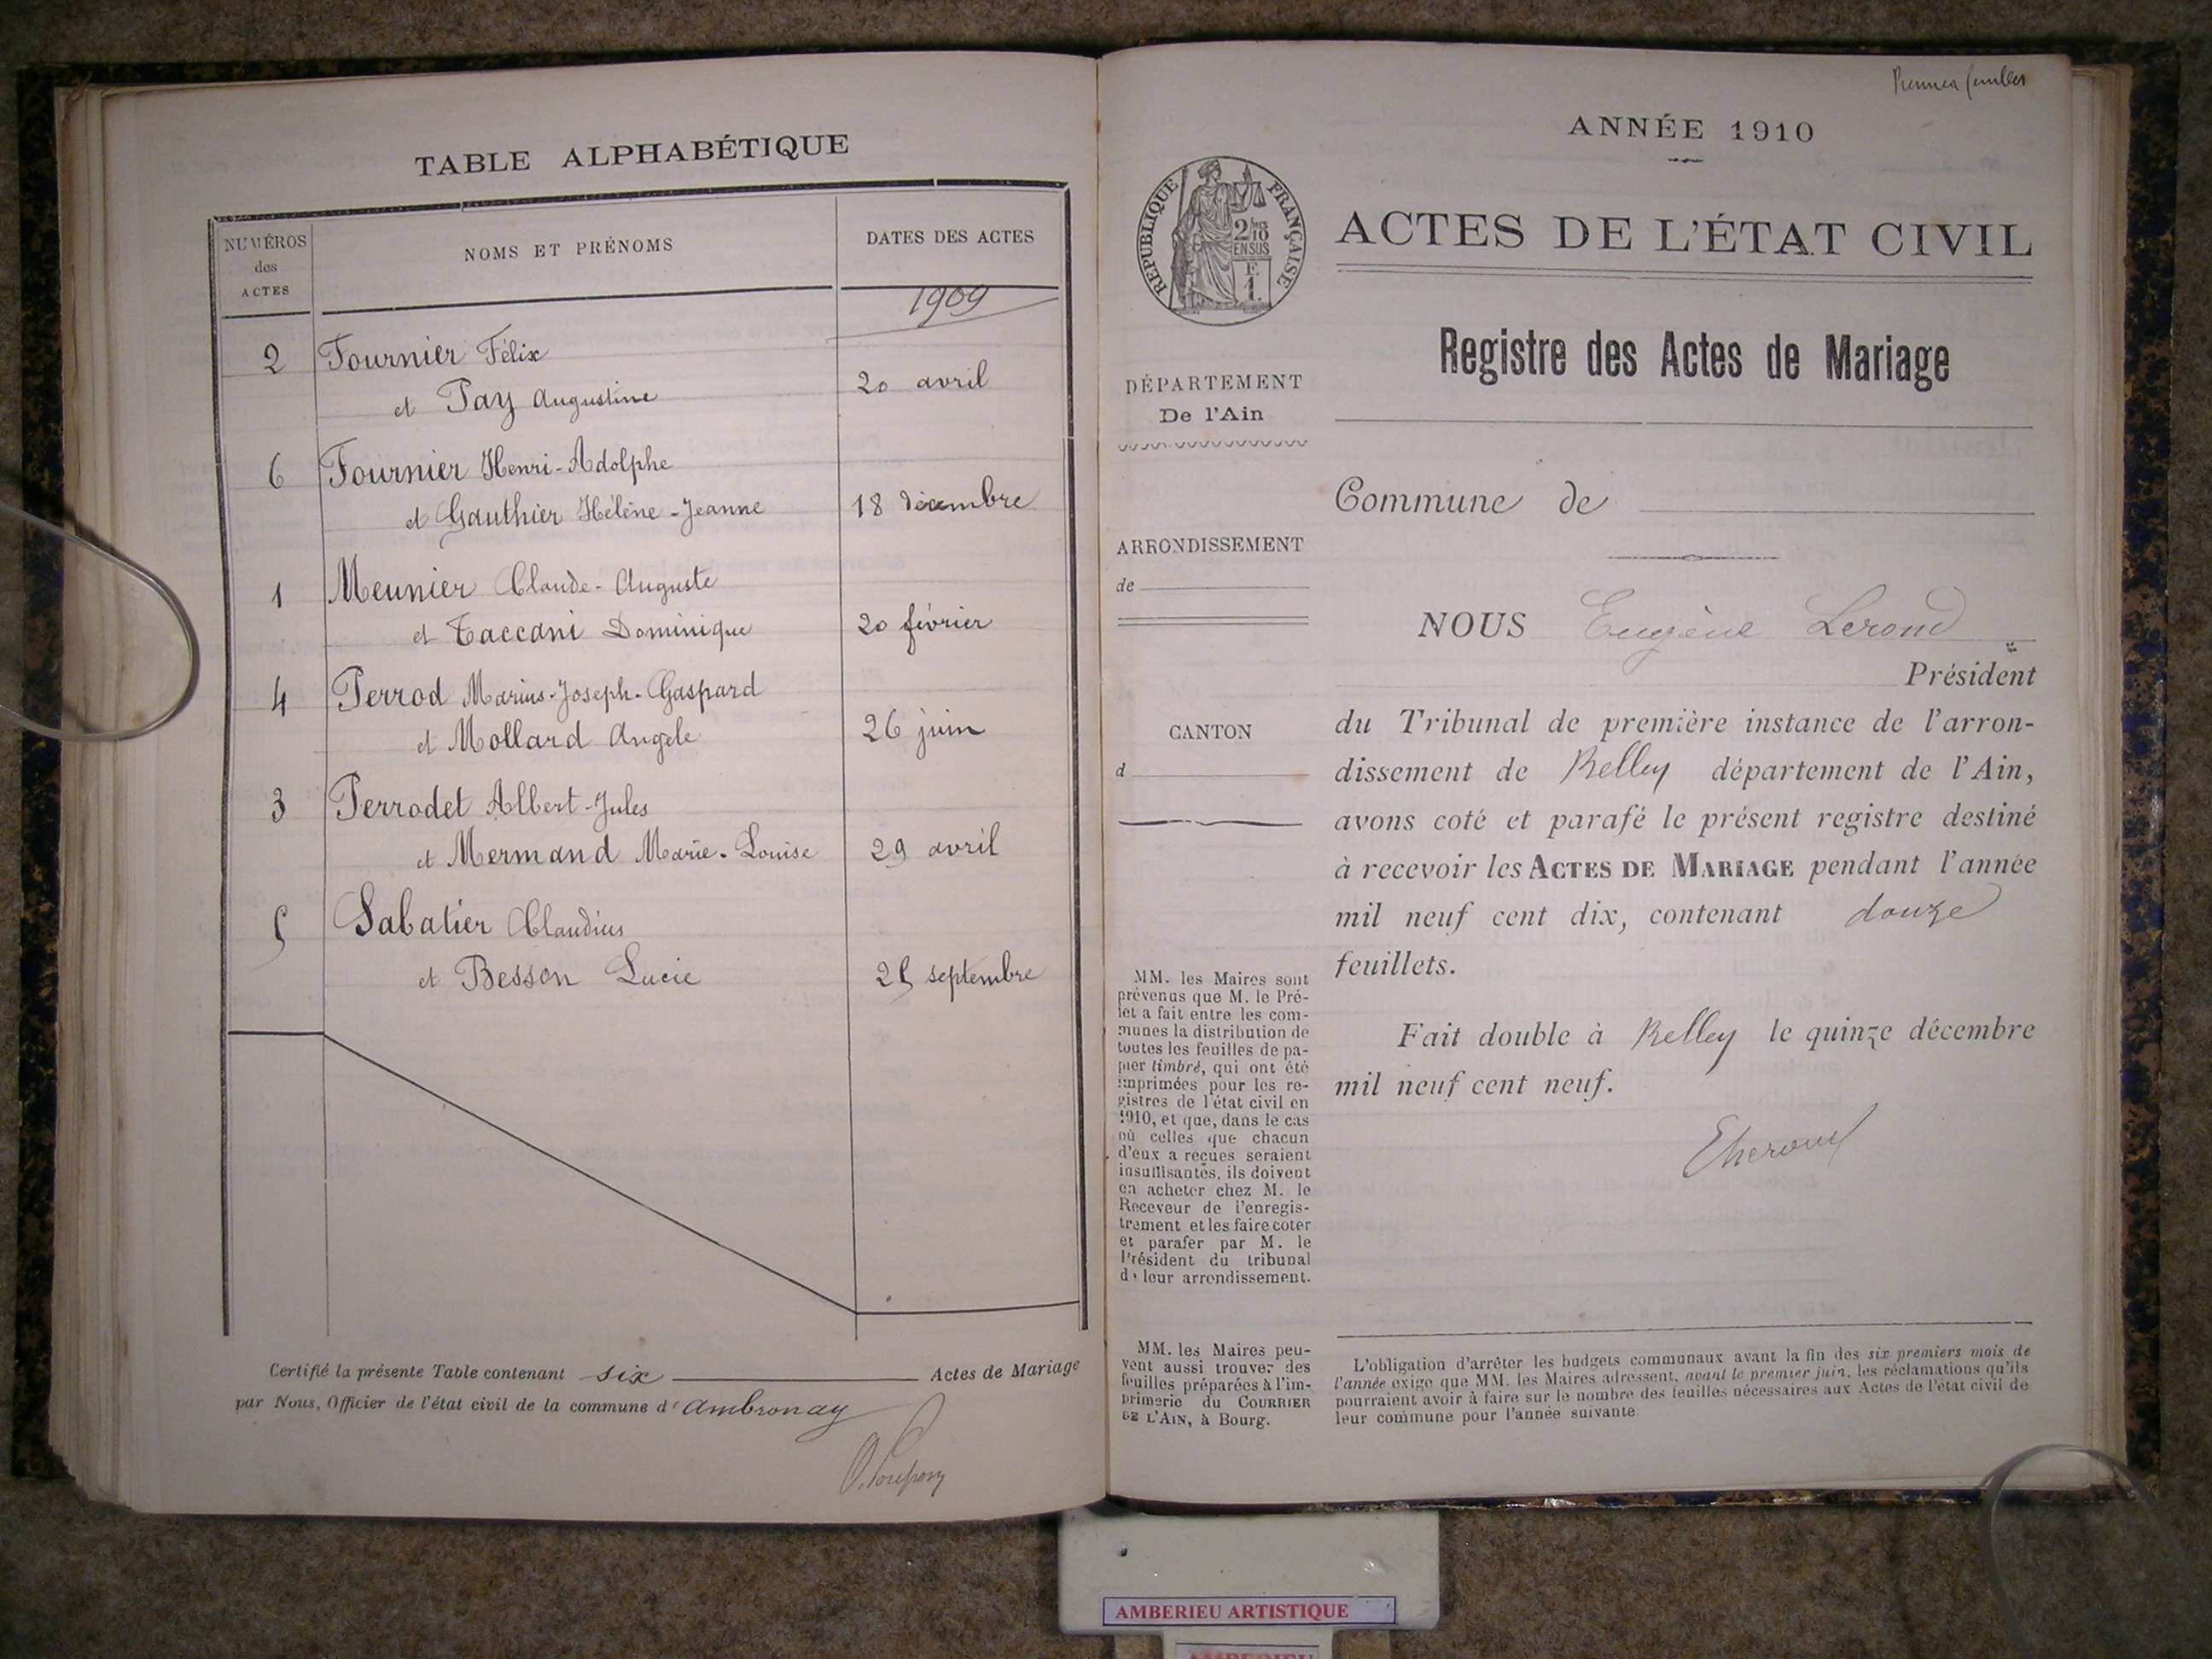 TABLE ALPHABÉTIQUE
NUMÉROS
des
ACTES
NOMS ET PRÉNOMS
DATES DES ACTES
1909
2 Fournier Félix
et Pay Augustine 20 avril
6 Fournier Henri-Adolphe
et Gauthier Hélène-Jeanne 18 décembre
1 Meunier Claude-Auguste
et Taccani Dominique 20 février
4 Perrod Marius-Joseph-Gaspard
et Mollard Angele 26 juin
3 Perrodet Albert-Jules
et Mermand Marie-Louise 29 avril
5 Sabatier Claudius
et Besson Lucie 25 septembre
Certifié la présente Table contenant six Actes de Mariage
par Nous, Officier de l'état civil de la commune d'Ambronay
Premier
ANNÉE 1910
RÉPUBLIQUE FRANÇAISE
2/10
EN SUS
F.
1.
ACTES DE L'ÉTAT CIVIL
Registre des Actes de Mariage
DÉPARTEMENT
De l'Ain
Commune de
ARRONDISSEMENT
de
CANTON
d
NOUS Eugène Lerond
Président
du Tribunal de première instance de l'arron-
dissement de Belley département de l'Ain,
avons coté et parafé le présent registre destiné
à recevoir les ACTES DE MARIAGE pendant l'année
mil neuf cent dix, contenant douze
feuillets.
Fait double à Belley le quinze décembre
mil neuf cent neuf.
MM. les Maires sont
prévenus que M. le Pré-
fet a fait entre les com-
munes la distribution de
toutes les feuilles de pa-
pier timbré, qui ont été
imprimées pour les re-
gistres de l'état civil en
1910, et que, dans le cas
où celles que chacun
d'eux a reçues seraient
insuffisantes, ils doivent
en acheter chez M. le
Receveur de l'enregis-
trement et les faire coter
et parafer par M. le
Président du tribunal
de leur arrondissement.
MM. les Maires peu-
vent aussi trouver des
feuilles préparées à l'im-
primerie du COURRIER
DE L'AIN, à Bourg.
L'obligation d'arrêter les budgets communaux avant la fin des six premiers mois de
l'année exige que MM. les Maires adressent, avant le premier juin, les réclamations qu'ils
pourraient avoir à faire sur le nombre des feuilles nécessaires aux Actes de l'état civil de
leur commune pour l'année suivante.
AMBERIEU ARTISTIQUE
AMBERIEU